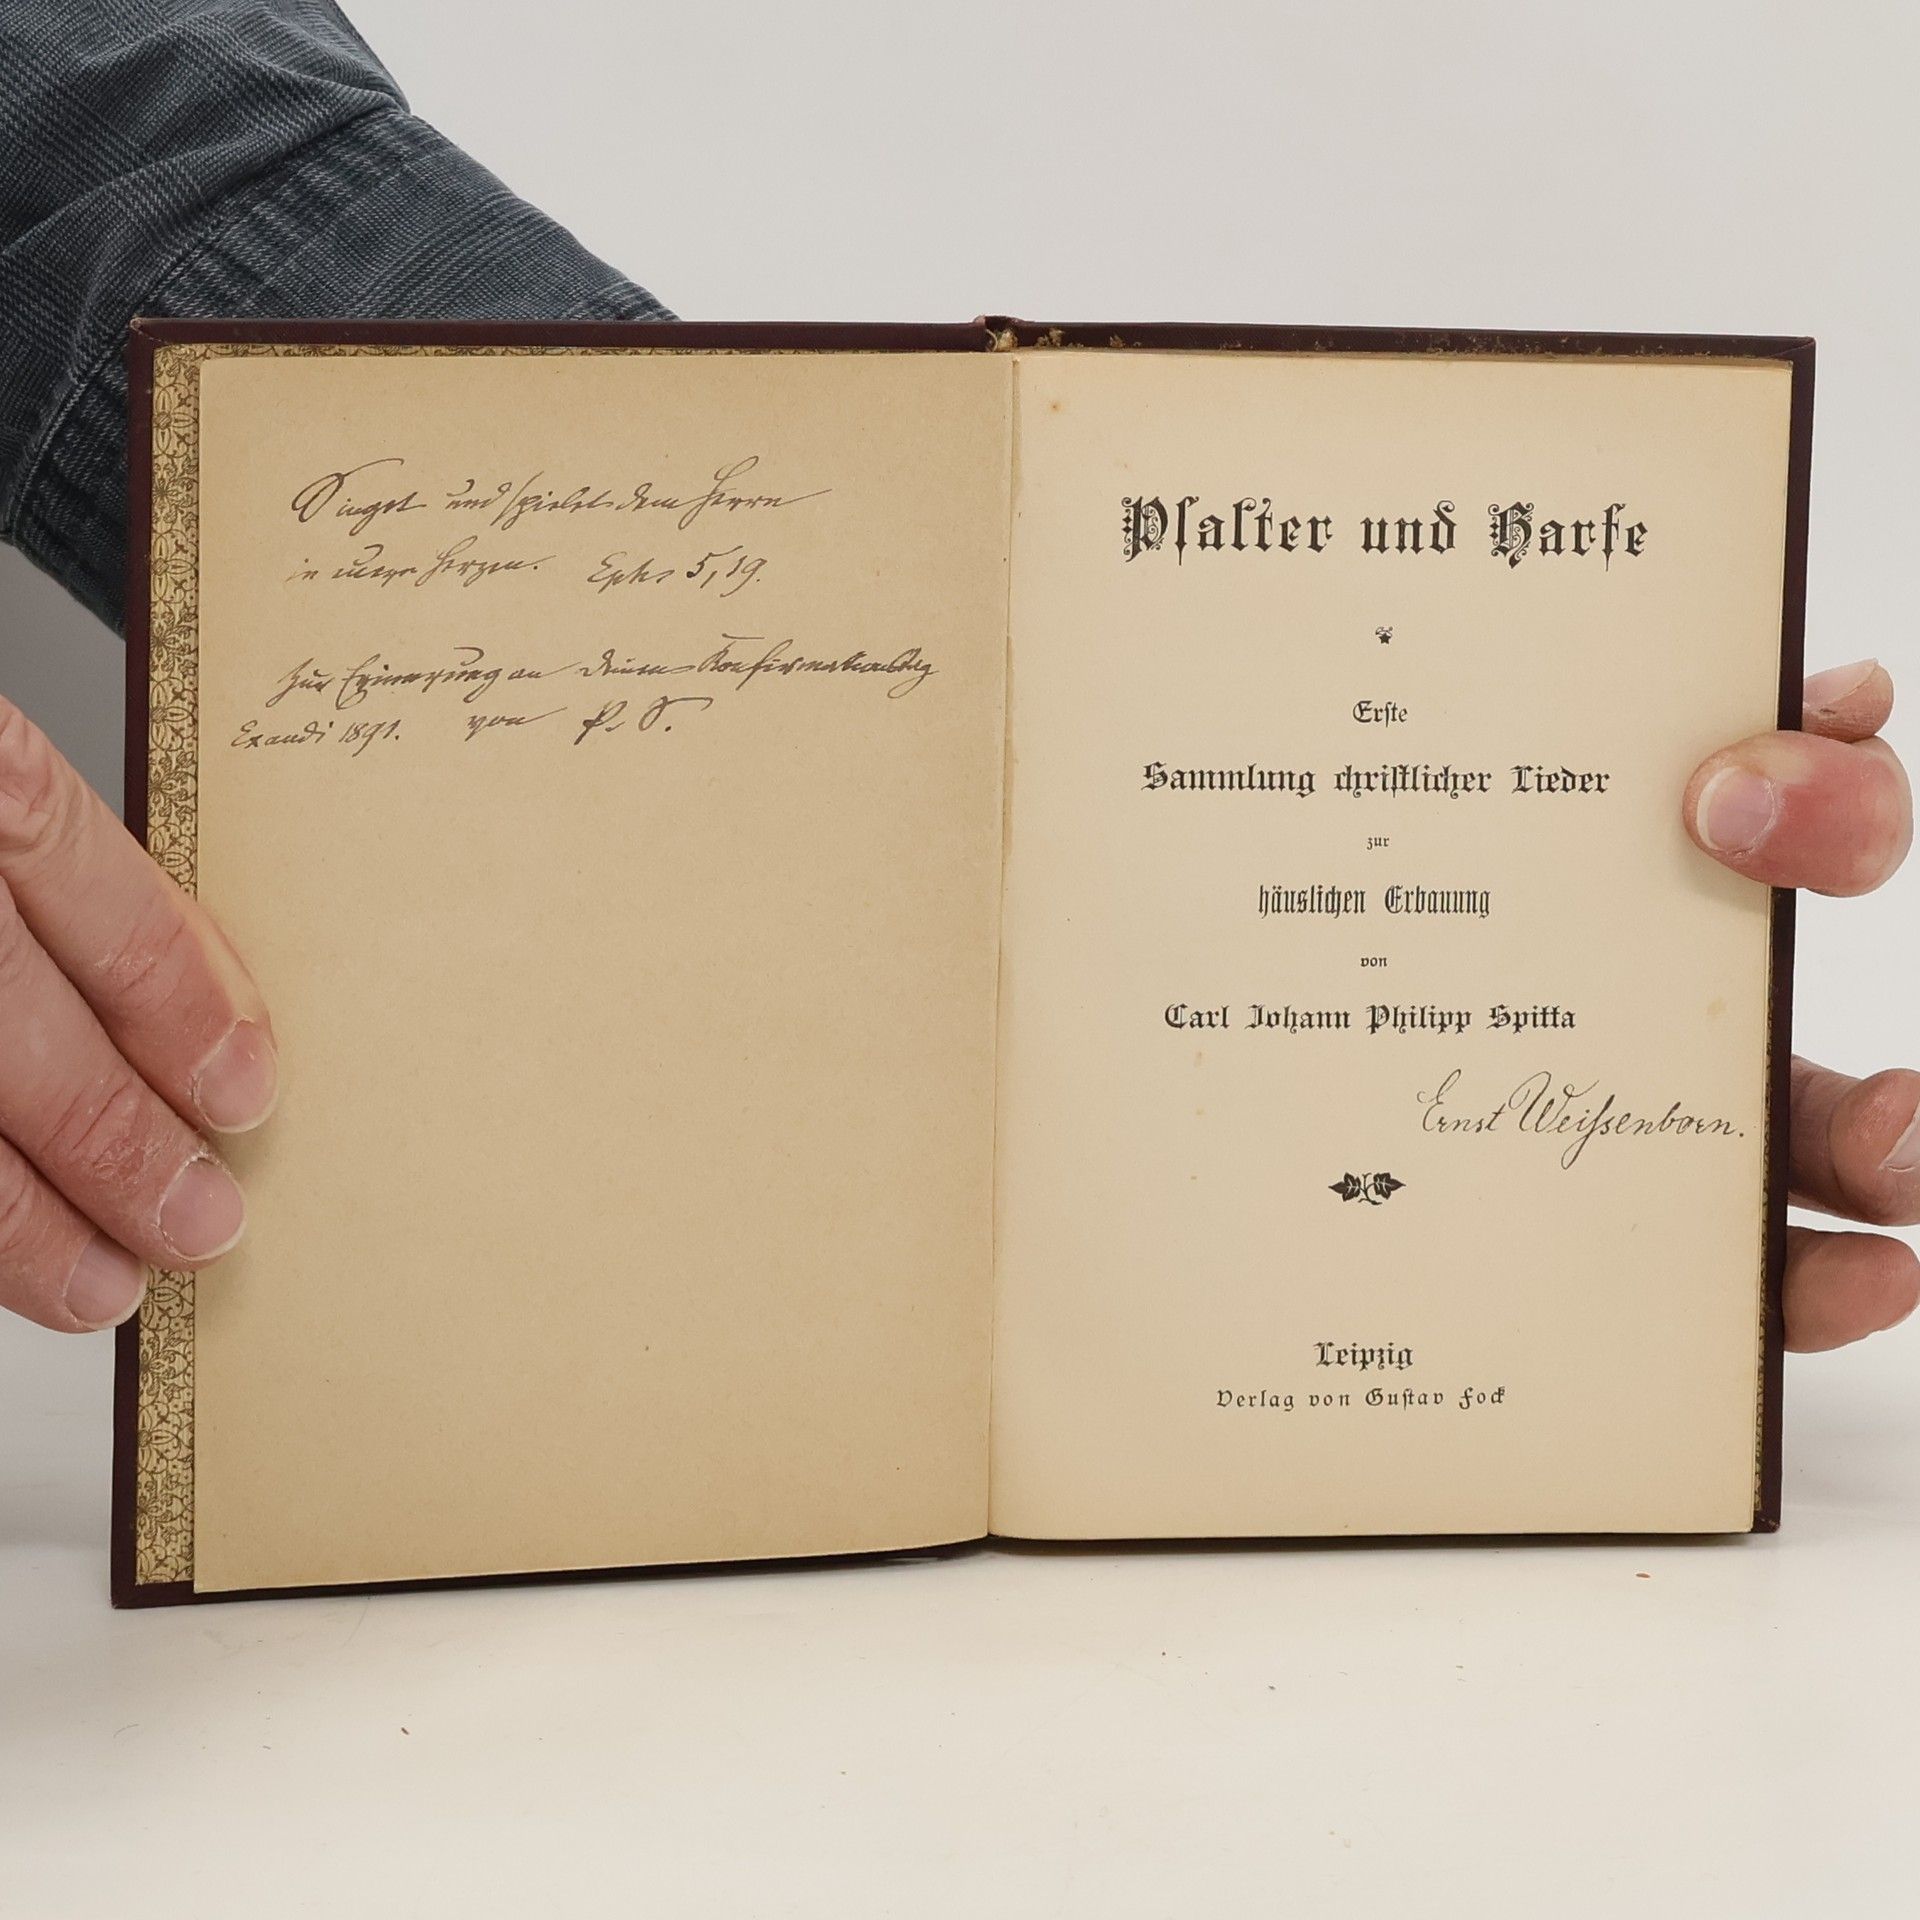 Singet und spielet dem Herrn
in eurem Herzen. Ephs 5,19.
Zur Erinnerung an deinen Konfirmationstag
Exaudi 1891. von P. S.
Psalter und Harfe
Erste
Sammlung christlicher Lieder
zur
häuslichen Erbauung
von
Carl Johann Philipp Spitta
Ernst Weißenborn.
Leipzig
Verlag von Gustav Fock